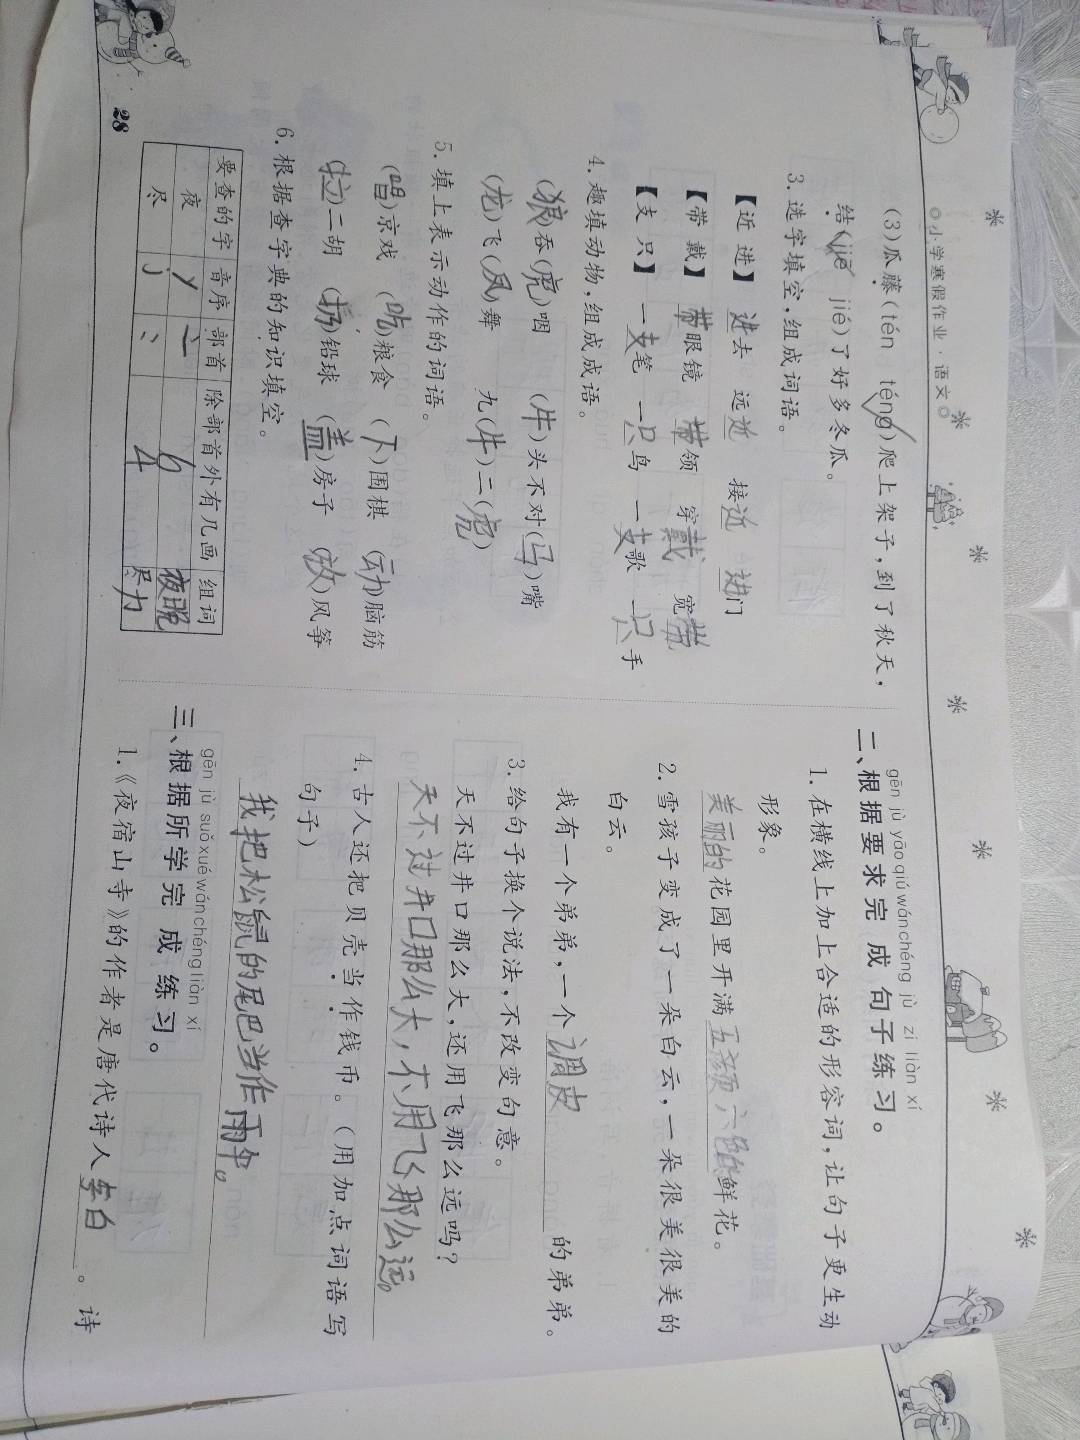 ◎小学寒假作业·语文◎
(3)瓜藤(tén téng)爬上架子,到了秋天,
结(jiē jié)了好多冬瓜。
3.选字填空,组成词语。
【近 进】 进去 远近 接近 进门
【带 戴】 带眼镜 带领 穿戴 宽带
【支 只】 一支笔 一只鸟 一支歌 一只手
4.趣填动物,组成成语。
(狼)吞(虎)咽 (牛)头不对(马)嘴
(龙)飞(凤)舞 九(牛)二(虎)
5.填上表示动作的词语。
(唱)京戏 (吃)粮食 (下)围棋 (动)脑筋
(拉)二胡 (扔)铅球 (盖)房子 (放)风筝
6.根据查字典的知识填空。
要查的字 音序 部首 除部首外有几画 组词
夜 Y 亠 6 夜晚
尽 J 4 尽力
28
gēn jù yāo qiú wán chéng jù zi liàn xí
二、根据要求完成句子练习。
1.在横线上加上合适的形容词,让句子更生动
形象。
美丽的花园里开满五颜六色鲜花。
2.雪孩子变成了一朵白云,一朵很美很美的
白云。
我有一个弟弟,一个调皮的弟弟。
3.给句子换个说法,不改变句意。
天不过井口那么大,还用飞那么远吗?
天不过井口那么大,不用飞那么远。
4.古人还把贝壳当作钱币。(用加点词语写
句子)
我把松鼠的尾巴当作雨伞。
gēn jù suǒ xué wán chéng liàn xí
三、根据所学完成练习。
1.《夜宿山寺》的作者是唐代诗人李白。诗